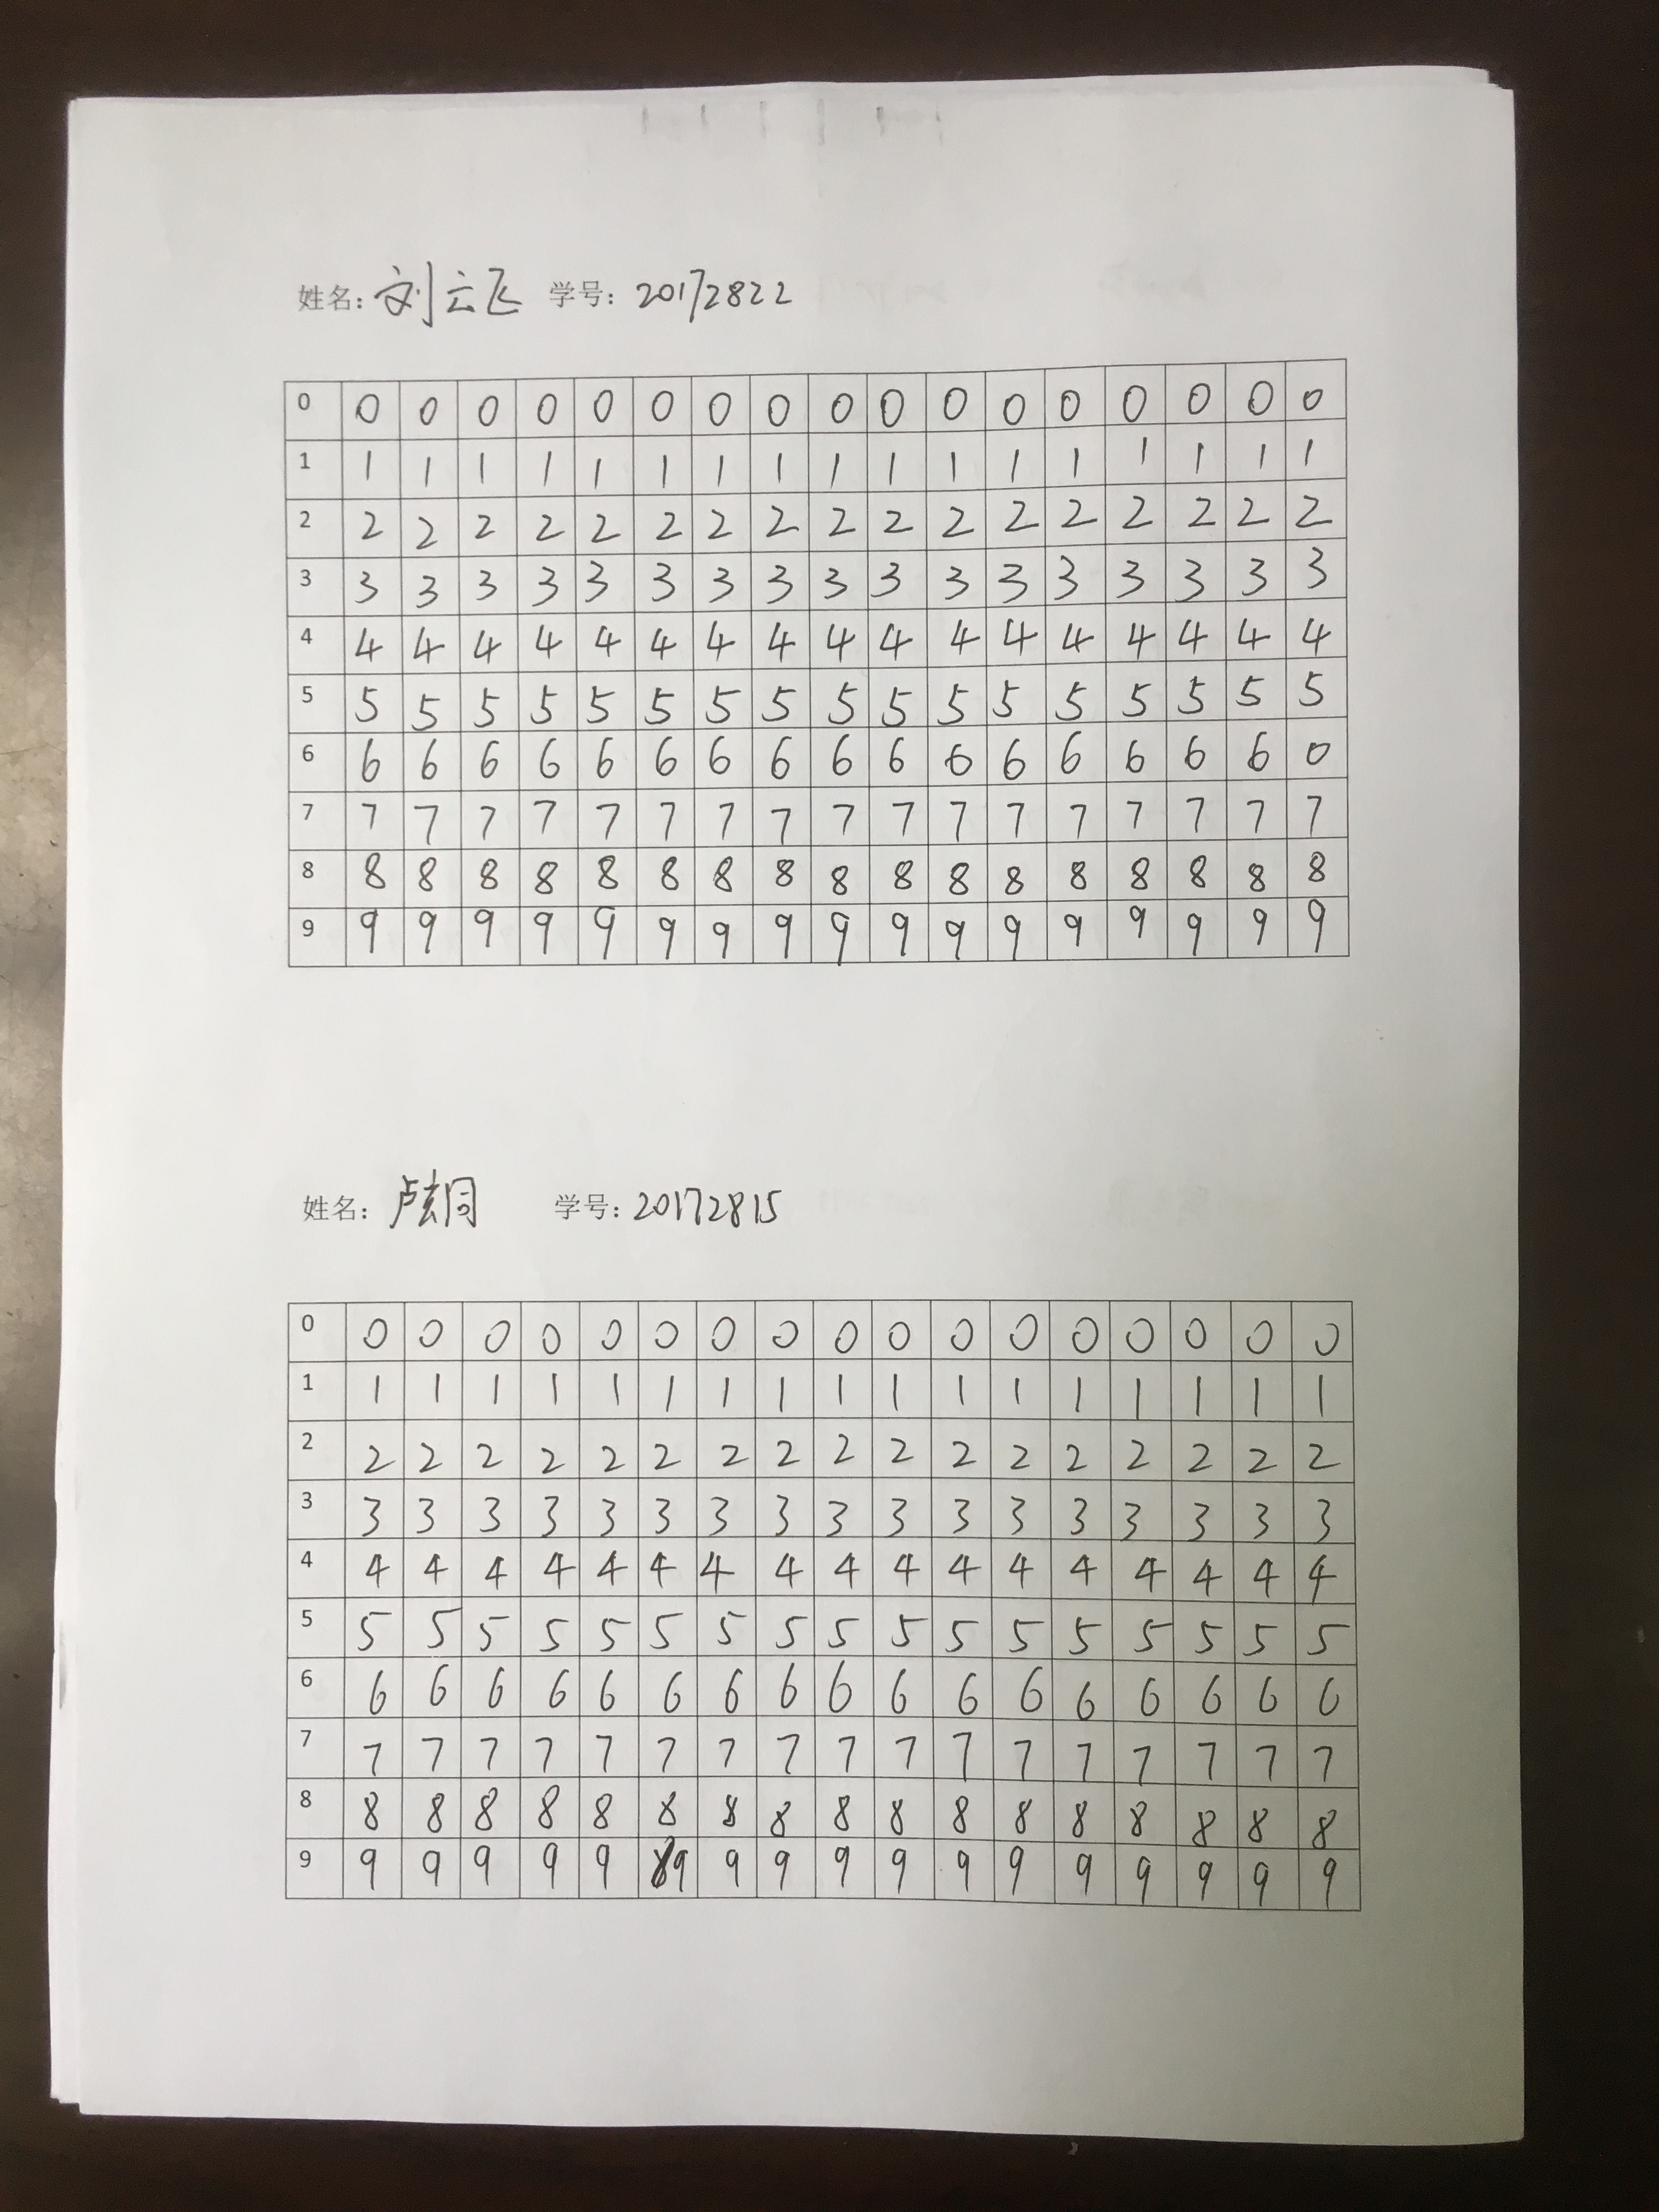 姓名：刘云飞 学号：20172822
0 0 0 0 0 0 0 0 0 0 0 0 0 0 0 0 0 0
1 1 1 1 1 1 1 1 1 1 1 1 1 1 1 1 1 1
2 2 2 2 2 2 2 2 2 2 2 2 2 2 2 2 2 2
3 3 3 3 3 3 3 3 3 3 3 3 3 3 3 3 3 3
4 4 4 4 4 4 4 4 4 4 4 4 4 4 4 4 4 4
5 5 5 5 5 5 5 5 5 5 5 5 5 5 5 5 5 5
6 6 6 6 6 6 6 6 6 6 6 6 6 6 6 6 6 0
7 7 7 7 7 7 7 7 7 7 7 7 7 7 7 7 7 7
8 8 8 8 8 8 8 8 8 8 8 8 8 8 8 8 8 8
9 9 9 9 9 9 9 9 9 9 9 9 9 9 9 9 9 9
姓名：卢玄同 学号：20172815
0 0 0 0 0 0 0 0 0 0 0 0 0 0 0 0 0 0
1 1 1 1 1 1 1 1 1 1 1 1 1 1 1 1 1 1
2 2 2 2 2 2 2 2 2 2 2 2 2 2 2 2 2 2
3 3 3 3 3 3 3 3 3 3 3 3 3 3 3 3 3 3
4 4 4 4 4 4 4 4 4 4 4 4 4 4 4 4 4 4
5 5 5 5 5 5 5 5 5 5 5 5 5 5 5 5 5 5
6 6 6 6 6 6 6 6 6 6 6 6 6 6 6 6 6 6
7 7 7 7 7 7 7 7 7 7 7 7 7 7 7 7 7 7
8 8 8 8 8 8 8 8 8 8 8 8 8 8 8 8 8 8
9 9 9 9 9 9 9 9 9 9 9 9 9 9 9 9 9 9